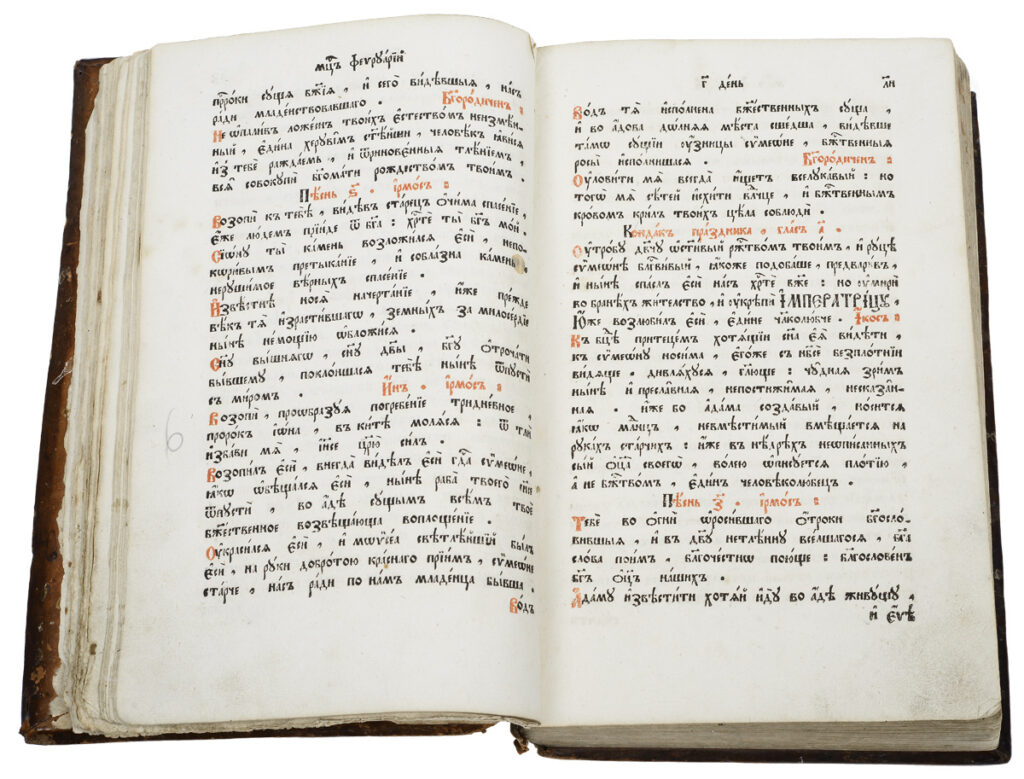 мц҃ъ феврꙋа́рїй
прⷪ҇ро́ки сꙋщыѧ бж҃їѧ , и҆ сего̀ ви́дѣвшыѧ , на́съ
ра́ди младе́нствовавшаго . Бг҃оро́диченъ :
Не ѡ҆пали́въ ложе́снъ твои́хъ є҆стество́мъ неизмѣ́н-
ный , є҆ди́на херꙋві́мъ ст҃ѣ́йши , человѣ́къ ꙗ҆ви́сѧ
и҆з̾ тебє̀ ражда́емь , и҆ ѿринове́нныѧ тлѣ́нїемъ ,
всѧ̑ совокꙋпѝ бг҃ома́ти рождество́мъ твои́мъ .
Пѣ́снь ѕ҃ . і҆рмо́съ :
Возопѝ къ тебѣ̀ , ви́дѣвъ ста́рецъ ѻ҆чи́ма спасе́нїе ,
є҆́же лю́демъ прїи́де ѿ бг҃а : хрⷭ҇тѐ ты̀ бг҃ъ мо́й .
Сїѡ́нꙋ ты̀ ка́мень возложи́лсѧ є҆сѝ , непо-
кѡри̑вымъ претыка́нїе , и҆ собла́зна ка́мень ,
нерꙋши́мое вѣ́рныхъ спасе́нїе .
И҆звѣ́стнѣ носѧ̀ начерта́нїе , и҆́же пре́жде
вѣ̑къ тѧ̀ и҆зрасти́вшагѡ , земны́хъ за милосе́рдїе
ны́нѣ не́мощїю ѡ҆бложи́сѧ .
Сн҃ꙋ вы́шнѧгѡ , сн҃ꙋ дв҃ы , бг҃ꙋ ѻ҆троча́ти
бы́вшемꙋ , покло́ншасѧ тебѣ̀ ны́нѣ ѿпꙋстѝ
съ ми́ромъ . И҆́нъ . і҆рмо́съ :
Возопѝ , проѡбразꙋ́ѧ погребе́нїе тридне́вное ,
проро́къ і҆ѡ́на , въ ки́тѣ молѧ́сѧ : ѿ тлѝ
и҆зба́ви мѧ̀ , і҆и҃се цр҃ю̀ си́лъ .
Возопи́лъ є҆сѝ , внегда̀ ви́дѣлъ є҆сѝ гдⷭ҇а сѷмеѡ́не ,
ꙗ҆́кѡ ѡ҆бѣща́лсѧ є҆сѝ , ны́нѣ раба̀ твоего̀ і҆и҃се
ѿпꙋстѝ , во а҆́дѣ сꙋ́щымъ всѣ̑мъ твоѐ
бжⷭ҇твенное возвѣща́юща воплоще́нїе .
Оу҆краси́лсѧ є҆сѝ , и҆ мѡѷсе́а свѣтлѣ́йшїй бы́лъ
є҆сѝ , на рꙋ́ки добро́тою кра́снаго прїи́мъ , сѷмеѡ́не
ста́рче , на́съ ра́ди по на́мъ младе́нца бы́вша .
Во́дъ
г҃ де́нь л҃и
Во́дъ тѧ̀ и҆спо́лнена бжⷭ҇твенныхъ сꙋ́ща ,
и҆ во а҆́дова до́лнѧѧ мѣста̀ сше́дша , ви́дѣвше
та́мѡ сꙋ́щїи ѹ҆́зницы сѷмеѡ́не , бжⷭ҇твенныѧ
росы̀ и҆спо́лнишасѧ . Бг҃оро́диченъ :
Оу҆лови́ти мѧ̀ всегда̀ и҆́щетъ вселꙋка́вый : но
тогѡ̀ мѧ̀ сѣте́й и҆схитѝ влⷣчце , и҆ бжⷭ҇твеннымъ
кро́вомъ кри́лъ твои́хъ цѣ́ла соблюдѝ .
Конда́къ пра́здника , гла́съ а҃ .
Оу҆тро́бꙋ дв҃чꙋ ѡ҆ст҃и́вый ржⷭ҇тво́мъ твои́мъ , и҆ рꙋ́цѣ
сѷмеѡ́нѣ блгⷭ҇ви́вый , ꙗ҆́коже подоба́ше , предвари́въ ,
и҆ ны́нѣ спа́слъ є҆сѝ на́съ хрⷭ҇тѐ бж҃е : но ѹ҆мирѝ
во бра́нехъ жи́тельство , и҆ ѹ҆крѣпѝ И҆МПЕРАТРИ́ЦꙊ ,
Ю҆́же возлюби́лъ є҆сѝ , є҆ди́не чл҃колю́бче . І҆́косъ :
Къ бц҃ѣ прите́цемъ хотѧ́щїи сн҃а є҆ѧ̀ ви́дѣти ,
къ сѷмеѡ́нꙋ носи́ма , є҆го́же съ нб҃сѐ безпло́тнїи
ви́дѧще , дивлѧ́хꙋсѧ , гл҃юще : чꙋ́днаѧ зри́мъ
ны́нѣ и҆ пресла́внаѧ , непостижи̑маѧ , несказа̑н-
наѧ . и҆́же во а҆да́ма созда́вый , но́ситсѧ
ꙗ҆́кѡ мл҃нцъ , невмѣсти́мый вмѣща́етсѧ на
рꙋка́хъ ста́рчихъ : и҆́же въ нѣ́дрѣхъ неѡпи́санныхъ
сы́й ѻ҆ц҃а̀ своегѡ̀ , во́лею ѡ҆пи́сꙋетсѧ пло́тїю ,
а҆ не бжⷭ҇тво́мъ , є҆ди́нъ человѣколю́бецъ .
Пѣ́снь з҃ . і҆рмо́съ :
Тебѐ во ѻ҆гнѝ ѡ҆роси́вшаго ѻ҆́троки бг҃осло-
ви́вшыѧ , и҆ въ дв҃ꙋ нетлѣ́ннꙋ всели́вшагосѧ , бг҃а
сло́ва пои́мъ , благоче́стнѡ пою́ще : благослове́нъ
бг҃ъ ѻ҆ц҃ъ на́шихъ .
А҆да́мꙋ и҆звѣсти́ти хотѧ́й и҆дꙋ̀ во а҆́дѣ живꙋ́щꙋ ,
и҆ є҆́ѵѣ
6